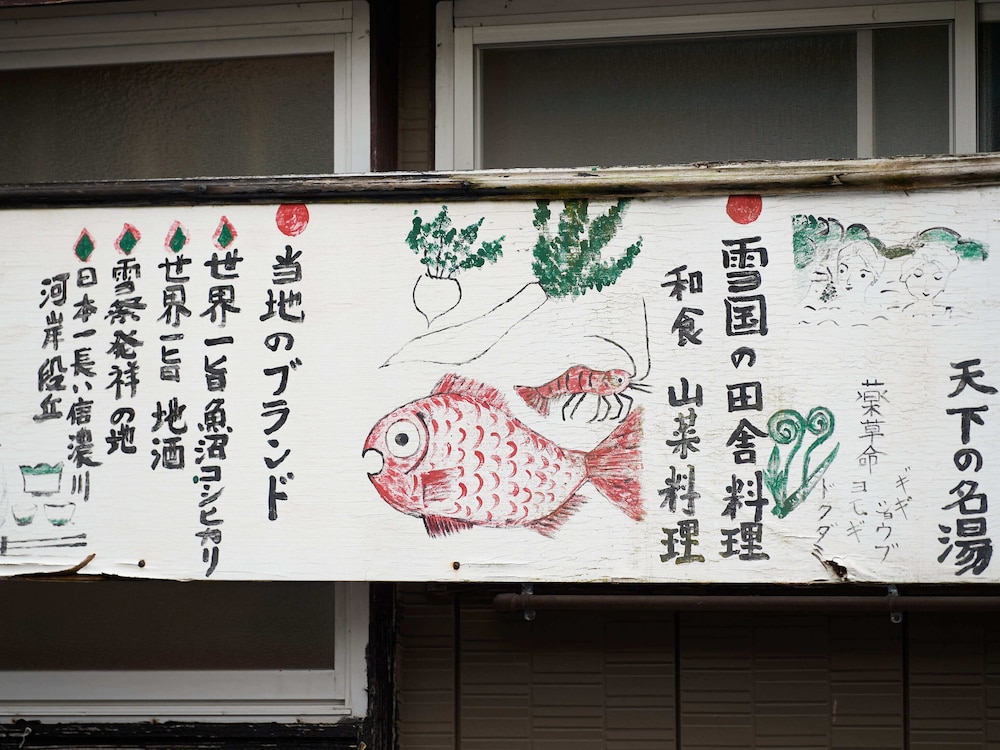 天下の名湯
薬草命
ヨモギ
ドクダミ
雪国の田舎料理
和食 山菜料理
当地のブランド
世界一旨魚沼コシヒカリ
世界一旨 地酒
雪祭発祥の地
日本一長い信濃川
河岸段丘